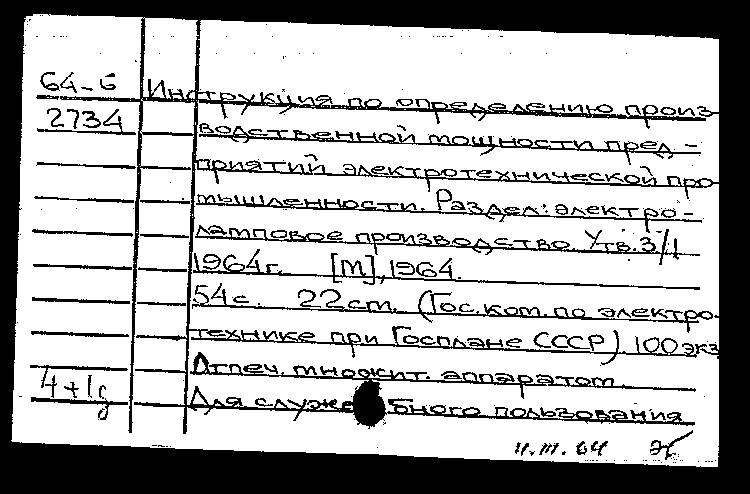 64-6 Инструкция по определению произ-
2734 водственной мощности пред-
приятий электротехнической про-
мышленности. Раздел: электро-
ламповое производство. Утв. 3/I
1964г. [М], 1964.
54с. 22см. (Гос. ком. по электро-
технике при Госплане СССР) 100 экз
Отпеч. множит. аппаратом.
4+1g Для служебного пользования
II. III. 64